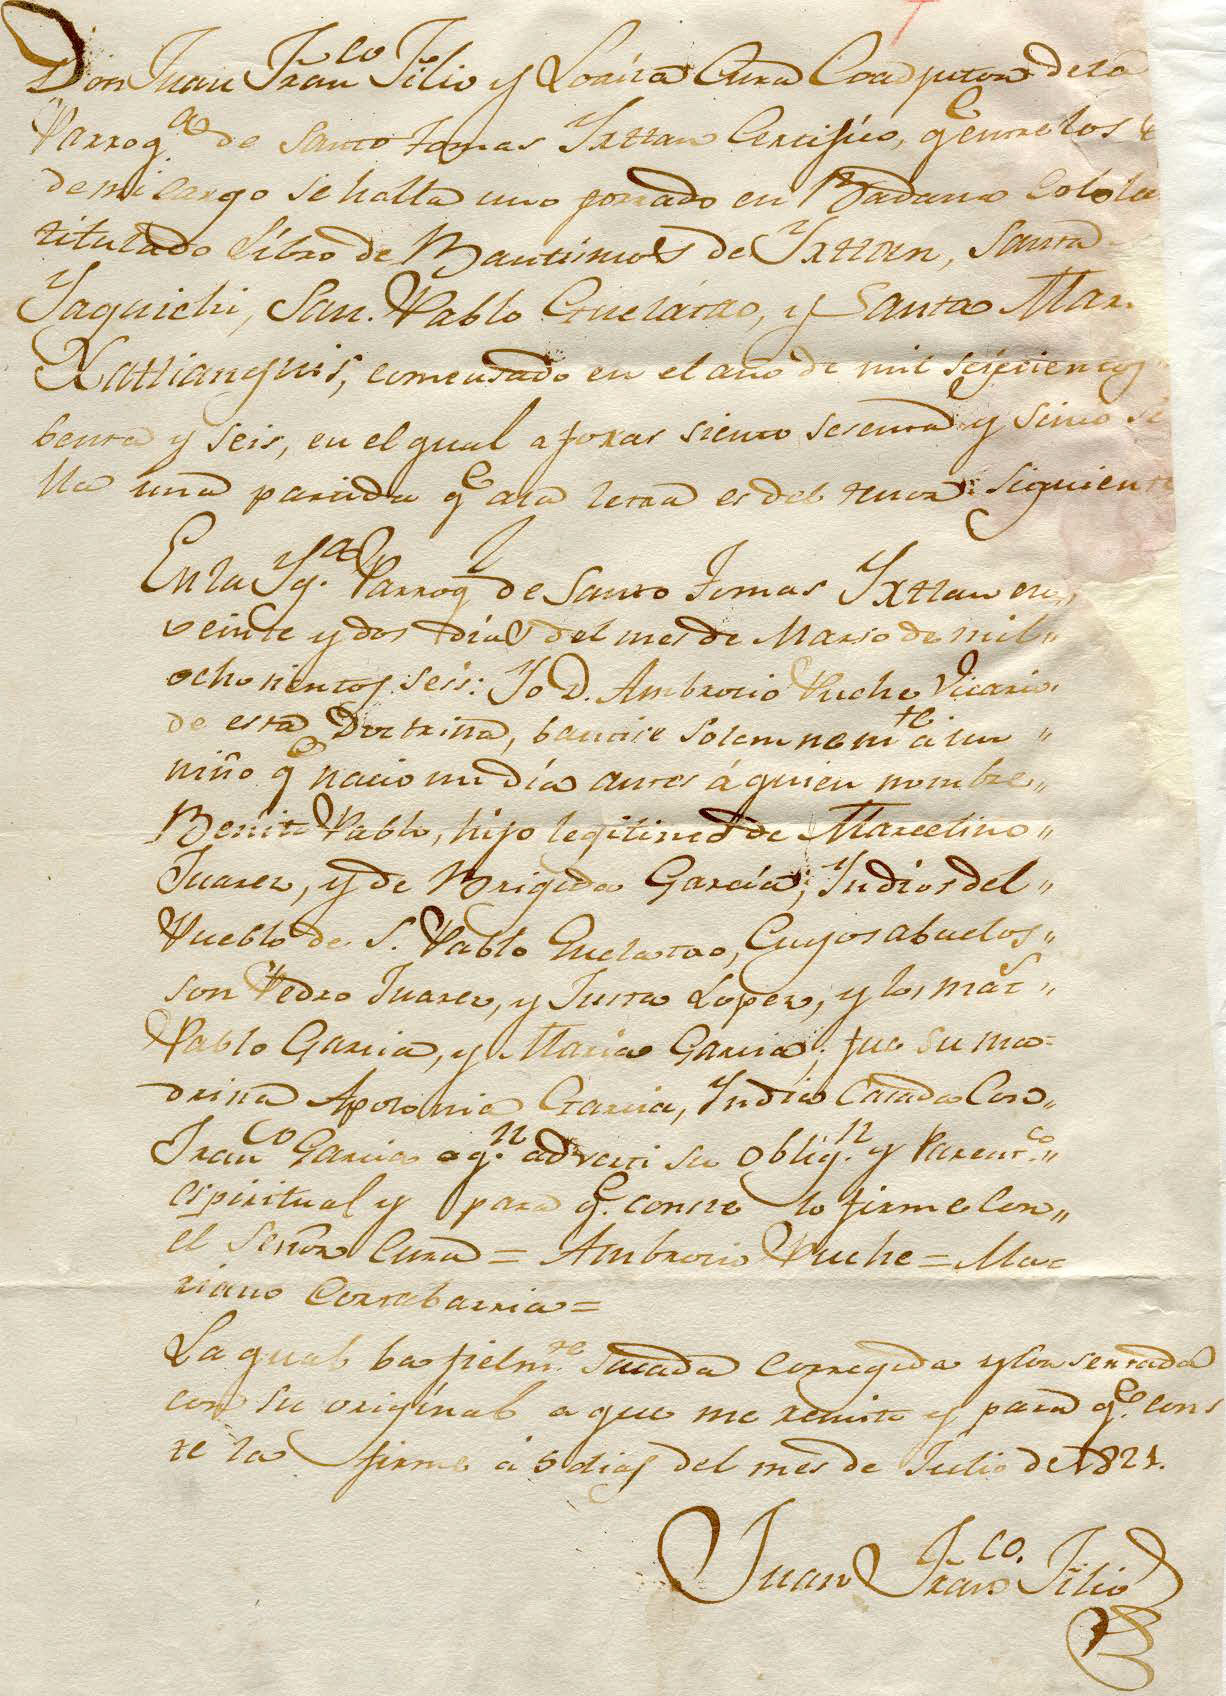 Don Juan Fran.co Filio y Loaiza Cura Coadjutor de la
Parroq.a de Santo Tomas Yxtlan Certifico, q.e entre los
de mi cargo se halla uno forrado en Badana
titulado Libro de Bautismos de Yxtlan, Santa
Yaguichi, San. Pablo Guelatao, y Santa Mar
Xatianguis, comensado en el año de mil
benta y seis, en el qual a foxas siento sesenta y sinco
lla una partida q.e a la letra es del tenor siguiente
En la Yg.a Parroq.l de Santo Tomas Yxtlan en
veinte y dos dias del mes de Marso de mil„
ochosientos seis: Yo D. Ambrocio Puche Vicario
de esta Doctrina, bautise solemnem.te á un „
niño q.e nacio un dia antes á quien nombre„
Benito Pablo, hijo legitimo de Marcelino„
Juarez, y de Brigida Garcia; Yndios del„
Pueblo de S. Pablo Guelatao, Cuyos abuelos„
son Pedro Juarez, y Justa Lopez, y los mat.s „
Pablo Garcia, y Maria Garcia; fue su ma=
drina Apolonia Garcia, Yndia Casada Con„
Fran.co Garcia a q.n adverti su oblig.n y Parent.co„
espiritual y para q.e conste lo firme Con„
el Señor Cura = Ambrocio Puche = Ma=
riano Cortabarria=
La qual ba fielm.te sacada corregida y consertada
con su original a que me remito y para q.e cons
te la firme á 5 dias del mes de Julio de 1821.
Juan Fran.co Filio